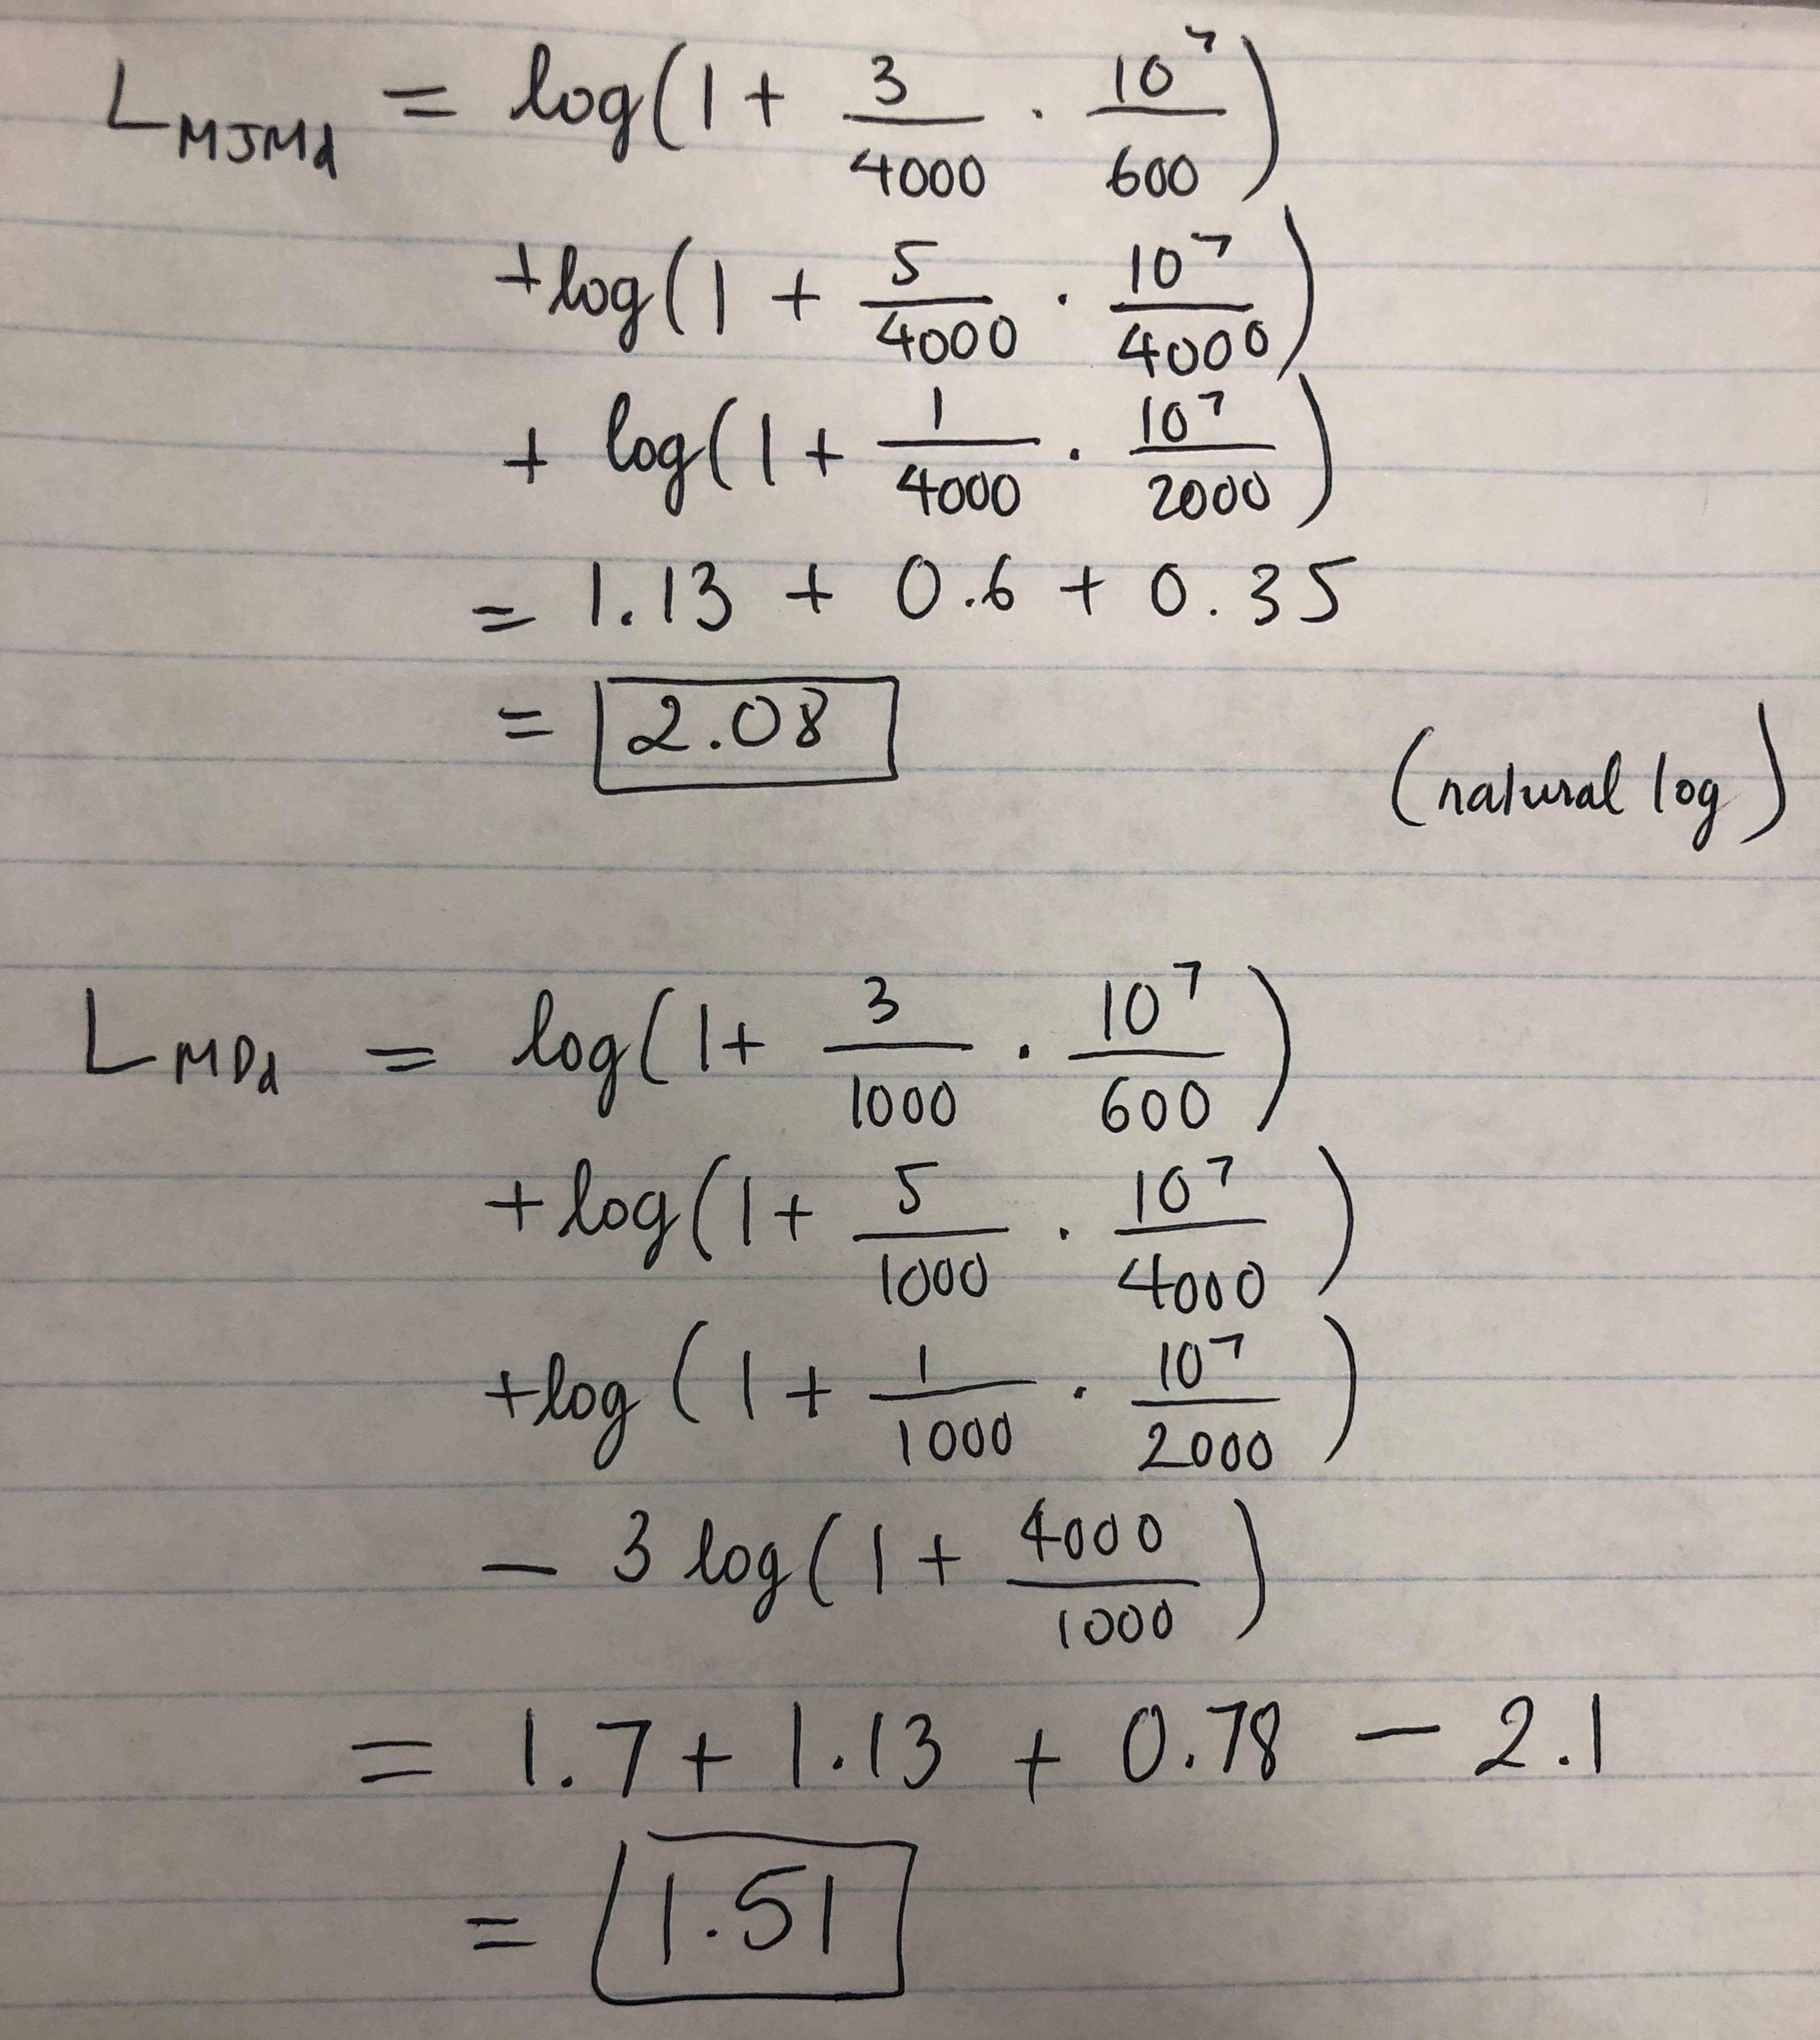 L_MJMd = log(1 + 3/4000 · 10^7/600)
+log(1 + 5/4000 · 10^7/4000)
+ log(1 + 1/4000 · 10^7/2000)
= 1.13 + 0.6 + 0.35
= 2.08
(natural log)
L_MDd = log(1+ 3/1000 · 10^7/600)
+log(1+ 5/1000 · 10^7/4000)
+log(1+ 1/1000 · 10^7/2000)
- 3 log(1 + 4000/1000)
= 1.7 + 1.13 + 0.78 - 2.1
= 1.51